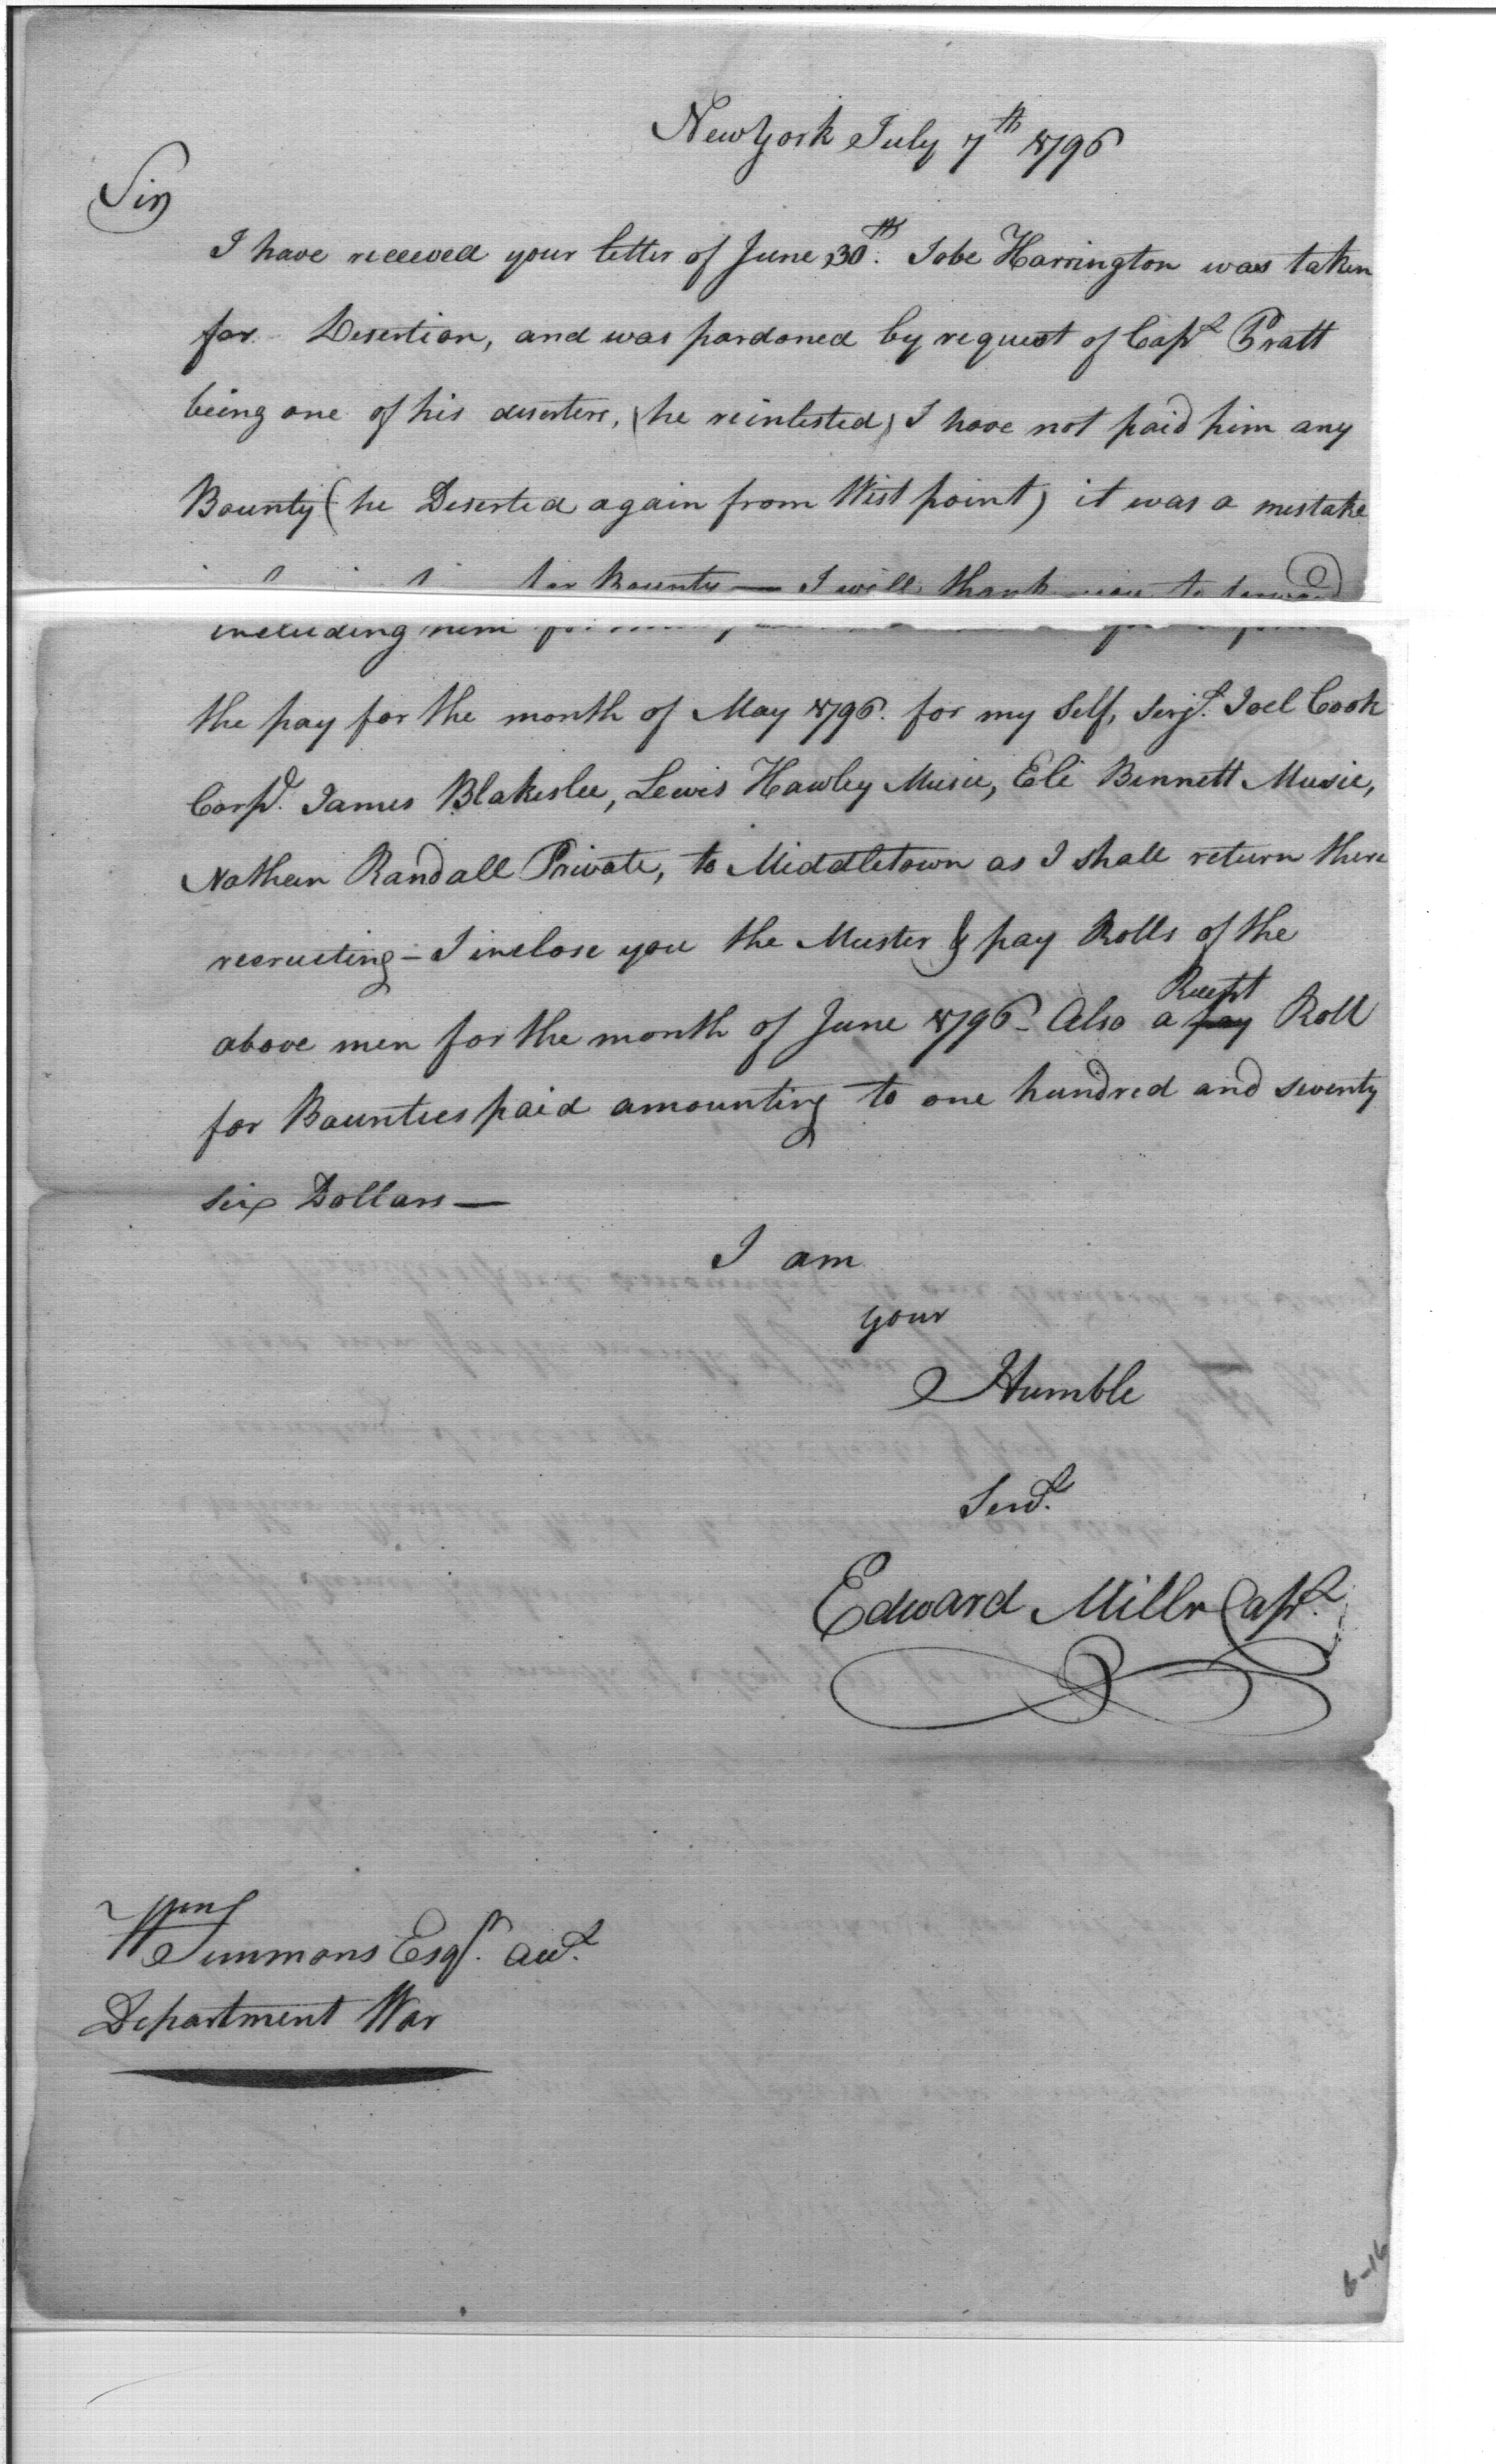 New York July 7th 1796
Sir
I have receved your letter of June 30th. Jobe Harrington was taken
for Desertion, and was pardoned by request of Capt Pratt
being one of his deserters, (he reinlested) I have not paid him any
Bounty (he Deserted again from West point) it was a mestake
including him for Bounty — I will thank you to forward
the pay for the month of May 1796. for my Self, Serjt. Joel Cook
Corpl. James Blakeslee, Lewis Hawley Music, Eli Bennett Music,
Nathan Randall Private, to Middletown as I shall return there
recruiting – I inclose you the Muster & pay Rolls of the
above men for the month of June 1796 – Also a pay Receipt Roll
for Bounties paid amounting to one hundred and seventy
six Dollars —
I am
your
Humble
Servt.
Edward Millr Capt.
Wm
Simmons Esqr. acct.
Department War
6-16